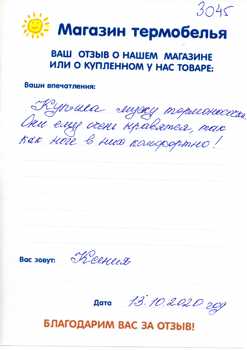 3045
Магазин термобелья
ВАШ ОТЗЫВ О НАШЕМ МАГАЗИНЕ
ИЛИ О КУПЛЕННОМ У НАС ТОВАРЕ:
Ваши впечатления:
Купила мужу термоноски.
Они ему очень нравятся, так
как ноге в них комфортно!
Вас зовут: Ксения
Дата 13.10.2020 год
БЛАГОДАРИМ ВАС ЗА ОТЗЫВ!